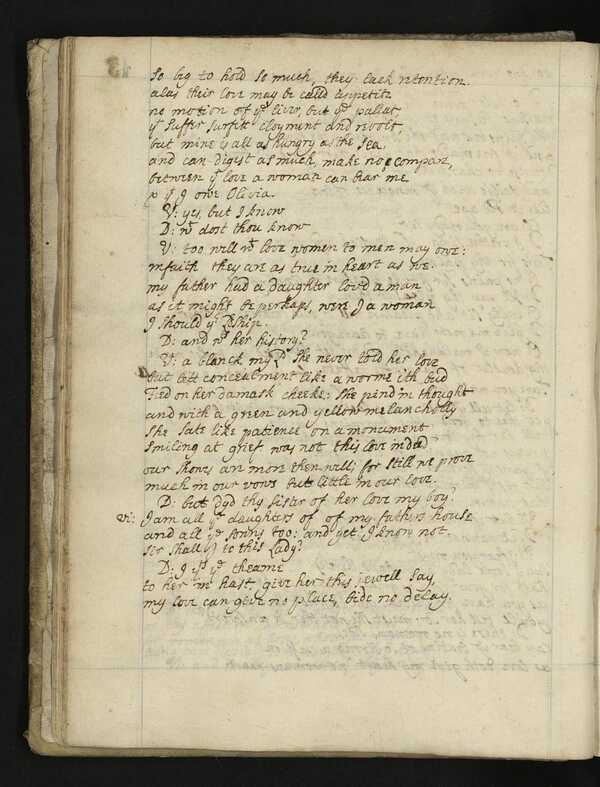 so big to hold so much, they lack retention.
alas their love may be calld appetite
no motion of yͤ liver, but yͤ pallat,
yͭ suffer surfitt cloyment and revolt,
but mine is all as hungry as the sea
and can digest as much, make no compare,
between yͭ love a woman can bear me
yͭ I owe Olivia.
V: yes, but I know
D: wͭ dost thou know
V: too well wͭ love women to men may owe:
infaith they are as true in heart as we.
my father had a daughter lov'd a man
as it might be perhaps, were I a woman
I should yͬ Lᵈship.
D: and wͭs her history?
V: a blanck my Lᵈ she never told her love
but lett concealment like a worme ith bud
Feed on her damask cheeke: she pin'd in thought
and with a green and yellow melancholly
she sate like patience on a monument
smiling at grief was not this love indeed
our shows are more then will; for still we prove
much in our vows but little in our love.
D: but dyd thy sister of her love my boy?
Vi: I am all yͤ daughters of of my fathers house
and all yͤ sonns too: and yet I know not.
sir shall I to this Lady?
D: I yͭs yͤ theame
to her in hast give her this jewell say,
my love can give no place, bide no delay.